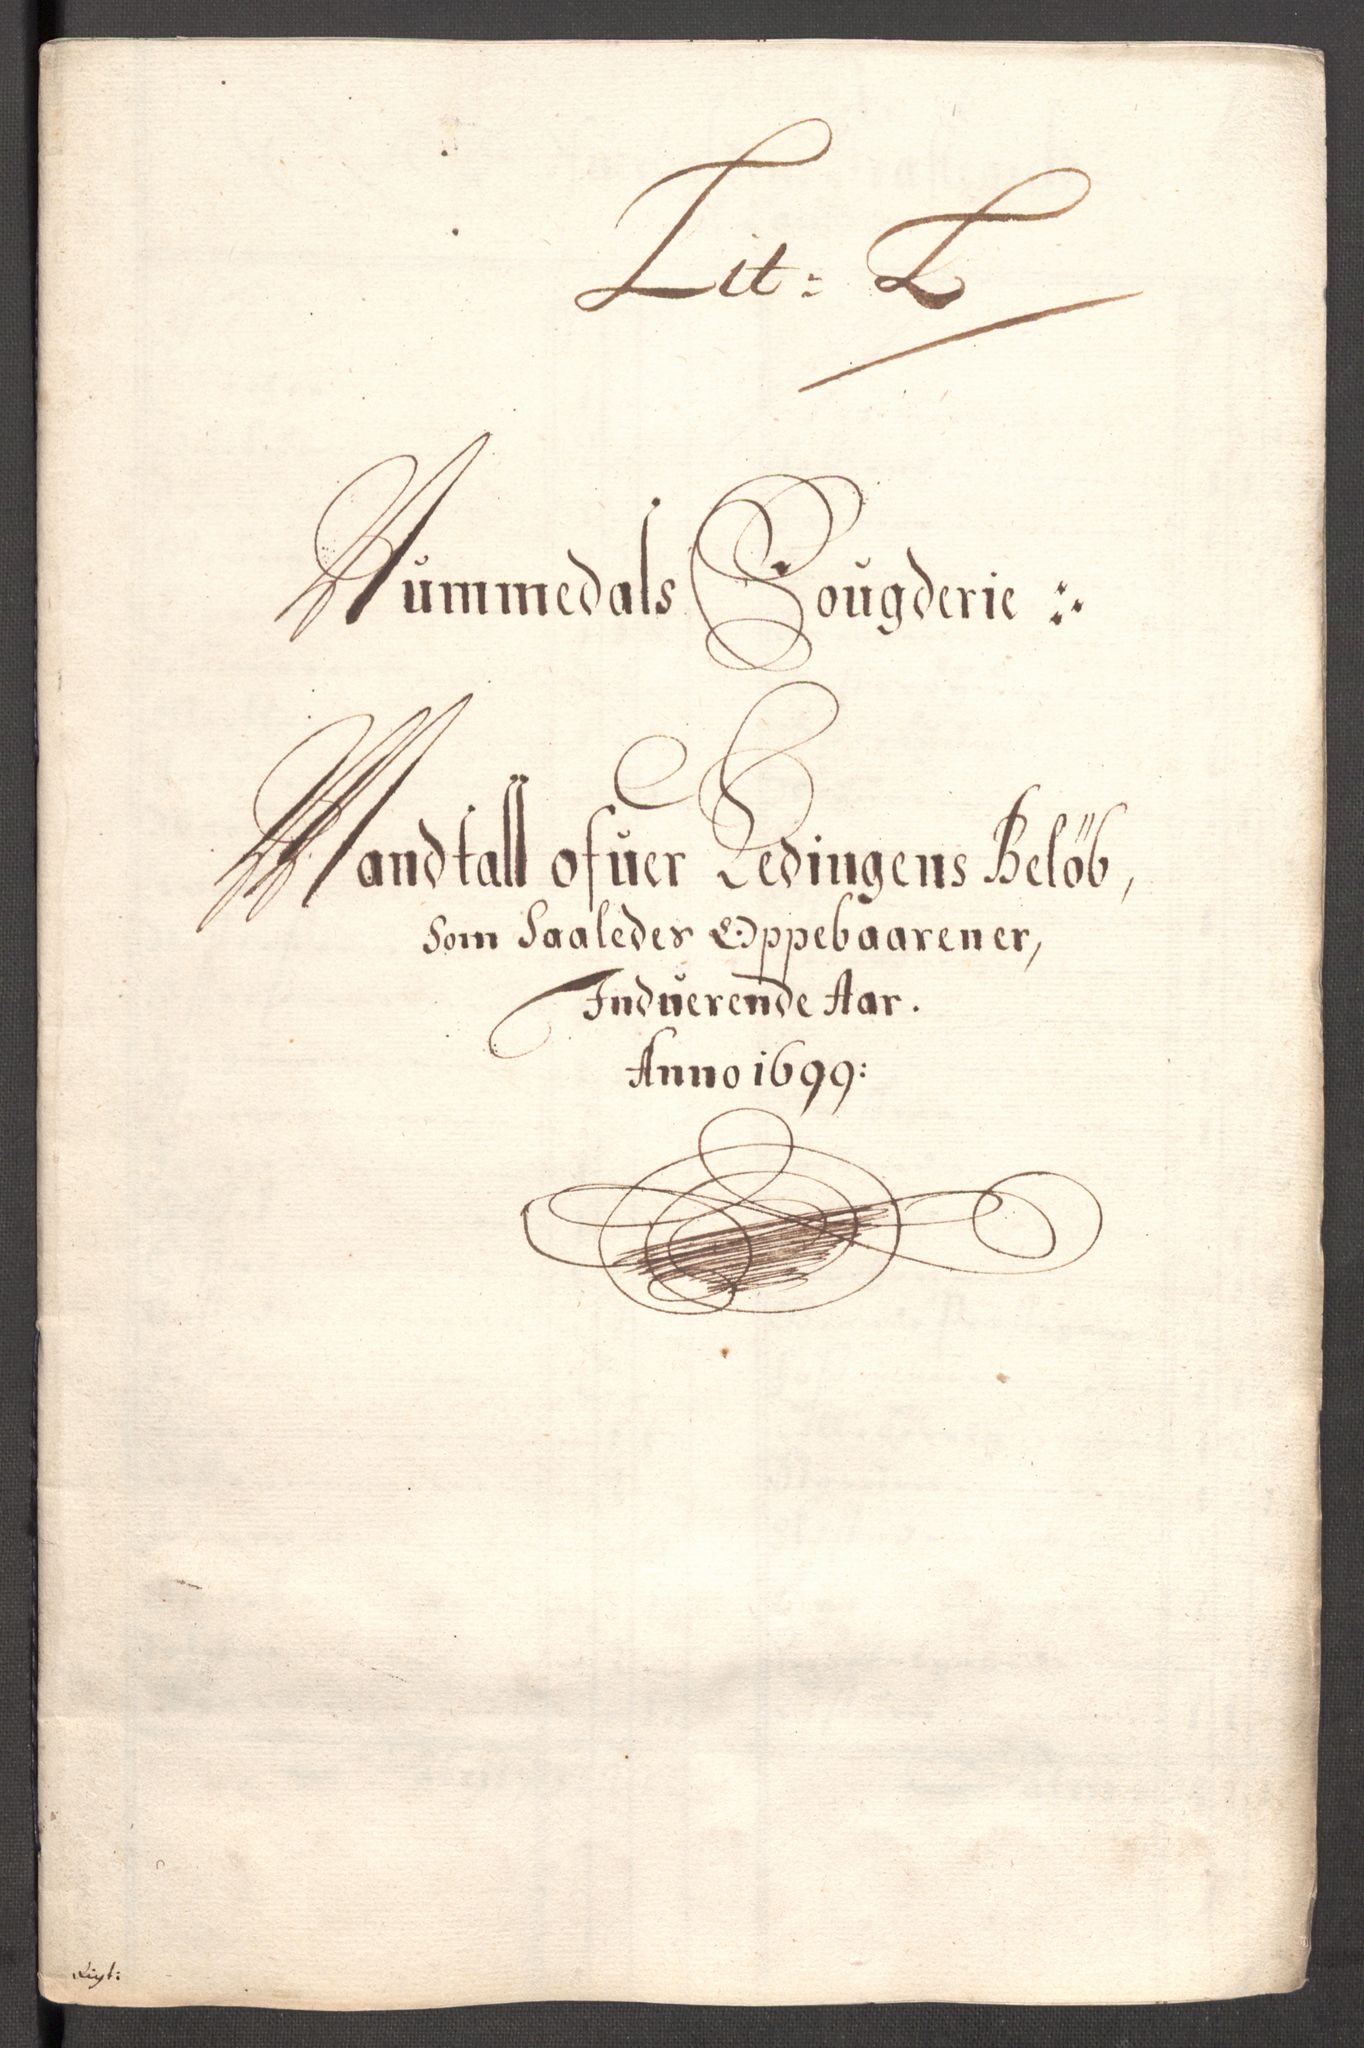 Lit: L
Nummedals Fougderie
Mandtall ofuer Ledingens Beløb,
Som Saaledes Oppebaaren er,
Induerende Aar.
Anno 1699: